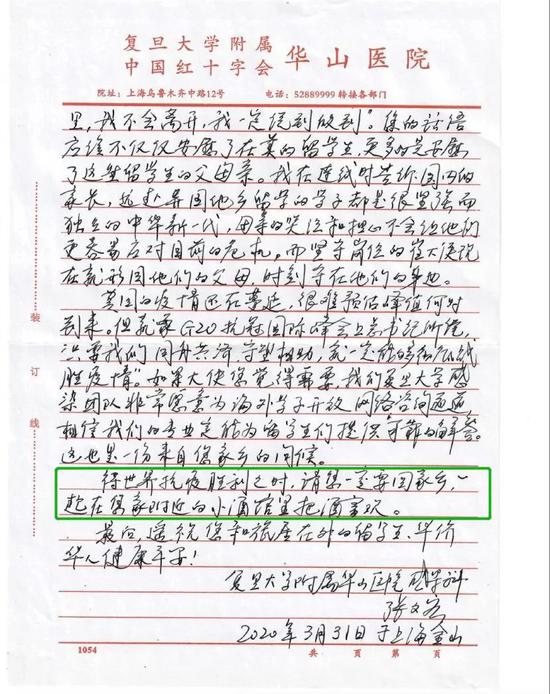 复旦大学附属
中国红十字会 华山医院
院址:上海乌鲁木齐中路12号 电话:52889999 转接各部门
里,我不会离开,我一定说到做到"。您的话语
应该不仅仅安慰了在美的留学生,更多的是安慰
了这些留学生的父母亲。我在连线时告诉国内的
家长,远赴异国他乡留学的学子都是很坚强而
独立的中华新一代,母亲的哭泣和担心不会让他们
更容易应对目前的危机。而坚守岗位的崔大使现
在就形同他们的父母,时刻守在他们的身边。
美国的疫情还在蔓延,很难预估峰值何时
到来。但就像G20抗冠国际峰会上总书记所说,
只要我们同舟共济、守望相助,就一定能够彻底战
胜疫情"。如果大使您觉得需要,我们复旦大学感
染团队非常愿意为海外学子开放网络咨询通道,
相信我们的专业定能为留学生们提供可靠的解答。
这也是一份来自您家乡的问候。
待世界抗疫胜利之时,请您一定要回家乡,一
起在您家附近的小酒馆里把酒言欢。
最后,遥祝您和旅居在外的留学生、华侨
华人健康平安!
复旦大学附属华山医院感染科
张文宏
2020年3月31日于上海金山
装
订
线
1054 共 页 第 页